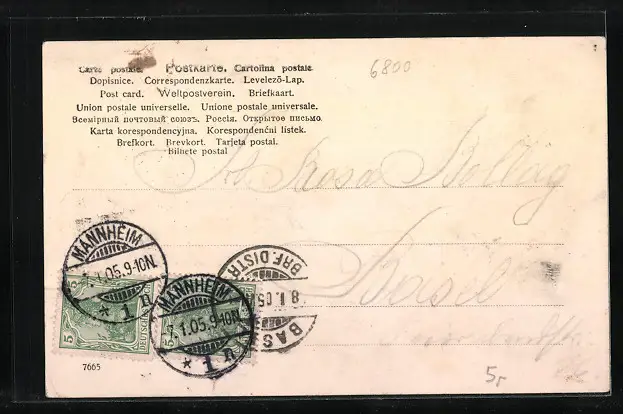 Carte postale. Postkarte. Cartolina postale.
Dopisnice. Correspondenzkarte. Levelező-Lap.
Post card. Weltpostverein. Briefkaart.
Union postale universelle. Unione postale universale.
Всемірный почтовый союзъ. Россія. Открытое письмо.
Karta korespondencyjna. Korespondenční listek.
Brefkort. Brevkort. Tarjeta postal.
Bilhete postal
6800
Rosa Bollag
Basel
MANNHEIM
7.1.05.9-10N.
* 1 n
MANNHEIM
7.1.05.9-10N.
* 1 n
BRF. DISTR.
8.1.05
BAS
5
5
7665
5,-